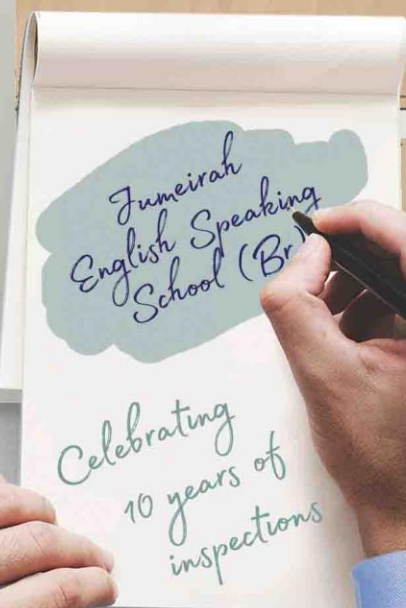 Jumeirah
English Speaking
School (Br)
Celebrating
10 years of
inspections